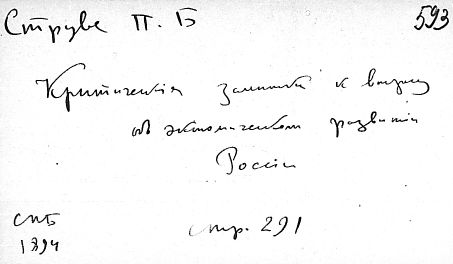 Струве П. Б
593
Критические заметки к вопросу
об экономическом развитии
России
СПБ
1894
стр. 291